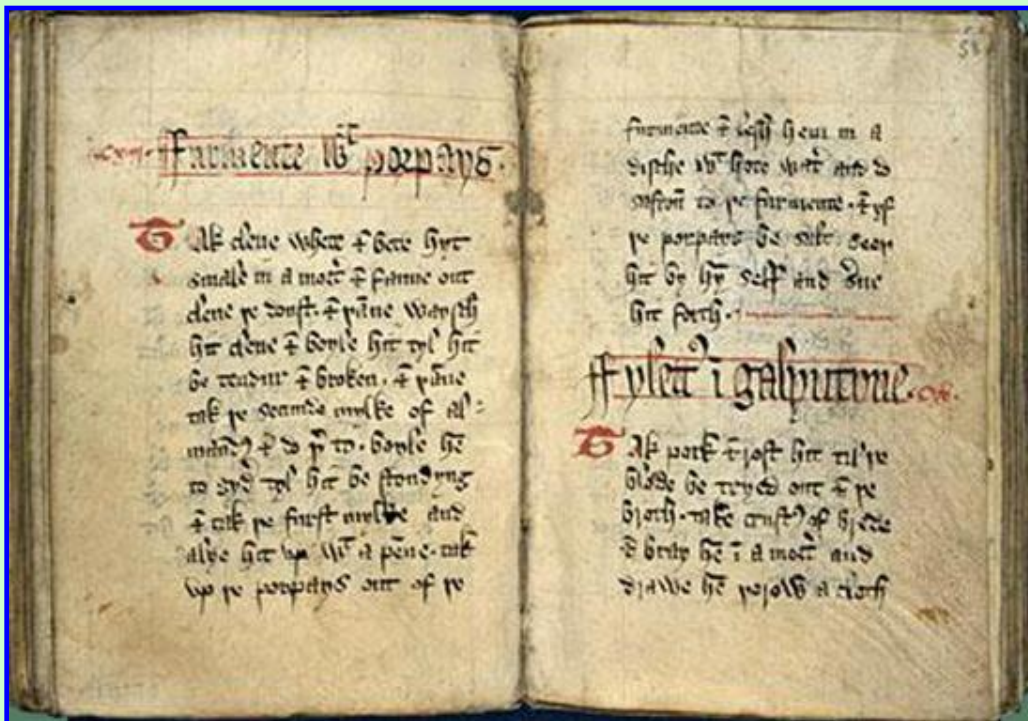 .cxvi. Furmente wt porpays.
Tak clene whete & bete hyt
smale in a mort & fanne out
clene þe doust. & þanne waysch
hit clene & boyle hit tyl hit
be tendur & broken. & þanne
tak þe secunde mylke of al=
mand & do þr to. boyle hē
to gyd tyl hit be stondyng
& tak þe furst mylke and
alye hit up wt a pēne. tak
up þe porpays out of þe
58
furmente & lesh hem in a
disshe wt hote wat and do
safron to þe furmente. & yf
þe porpays be salt. seeþ
hit by hȳ self and sue
hit forth.
Fylett ī galyntyne.
Tak pork & rost hit til þe
blode be tryed out & þe
broth. take crust of brede
& bray hē ī a mort and
drawe hē þorow a cloth